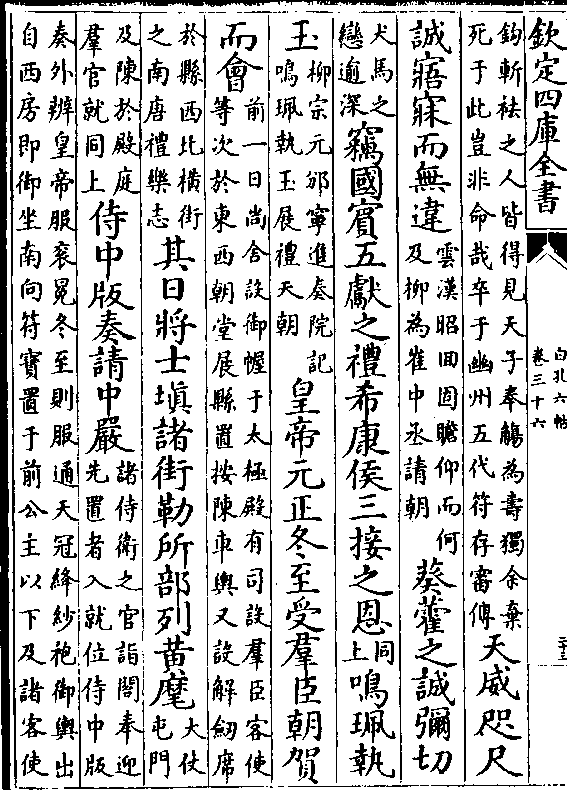 欽定四庫全書
白孔六帖
卷三十六
鈎斬袪之人皆得見天子奉觴為壽獨余棄
死于此豈非命哉卒于幽州五代符存審傳
天威咫尺
誠寤寐而無違
雲漢昭回固瞻仰而何
及柳為崔中丞請朝
葵藿之誠彌切
犬馬之
戀逾深
竊國賓五獻之禮希康侯三接之恩
同
上
鳴珮執
玉
柳宗元邠寧進奏院記
鳴珮執玉展禮天朝
皇帝元正冬至受羣臣朝賀
而會
前一日尚舍設御幄于太極殿有司設羣臣客使
等次於東西朝堂展縣置按陳車輿又設解劒席
於縣西北橫街
之南唐禮樂志
其日將士塡諸街勒所部列黃麾
大仗
屯門
及陳於殿庭
羣官就同上
侍中版奏請中嚴
諸侍衛之官詣閤奉迎
先置者入就位侍中版
奏外辦皇帝服衮冕冬至則服通天冠絳紗袍御輿出
自西房即御坐南向符寳置于前公主以下及諸客使